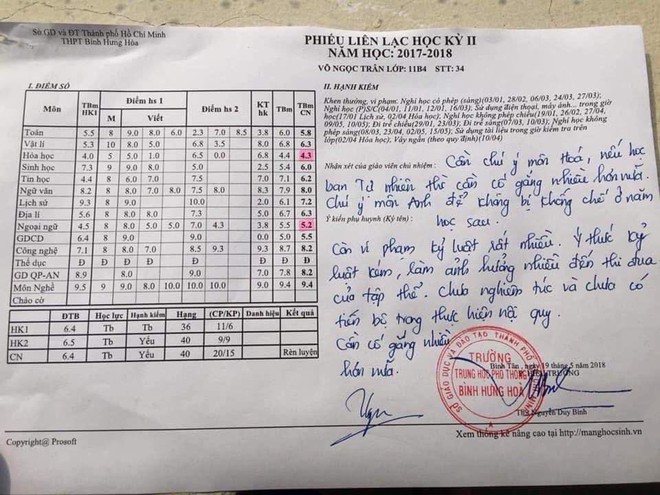 Sở GD và ĐT Thành phố Hồ Chí Minh
THPT Bình Hưng Hòa
PHIẾU LIÊN LẠC HỌC KỲ II
NĂM HỌC: 2017-2018
VÕ NGỌC TRÂN LỚP: 11B4 STT: 34
I. ĐIỂM SỐ
Môn TBm HK1 Điểm hs 1 Điểm hs 2 KT hk TBm TBm CN
M Viết
Toán 5.5 8 9.0 8.0 6.0 2.3 7.0 8.5 3.8 6.0 5.8
Vật lí 5.3 10 8.0 5.0 6.8 3.5 8.0 6.8 6.3
Hóa học 4.0 5 5.0 1.0 6.5 0.0 6.8 4.4 4.3
Sinh học 7.3 9 9.0 8.0 5.0 2.5 5.4 6.0
Tin học 4.4 8 5.0 7.0 7.5 7.5 7.1 6.2
Ngữ văn 8.2 8 8.0 7.0 8.0 7.5 8.0 8.3 7.9 8.0
Lịch sử 9.3 9.0 10.0 2.0 6.1 7.2
Địa lí 5.6 8 8.0 8.0 7.3 5.0 6.7 6.3
Ngoại ngữ 4.5 8 8.0 5.0 5.0 7.0 4.3 3.8 5.5 5.2
GDCD 6.4 9.0 9.0 0.0 5.0 5.5
Công nghệ 7.1 8 8.0 7.0 8.5 9.3 9.3 8.7 8.2
Thể dục Đ Đ Đ Đ Đ Đ
GD QP-AN 8.9 8.0 9.0 7.0 7.8 8.2
Môn Nghề 9.5 9 9.0 8.0 10.0 10.0 10.0 9.0 9.4 9.4
Chào cờ
ĐTB Học lực Hạnh kiểm Hạng (CP/KP) Danh hiệu Kết quả
HK1 6.4 Tb Tb 36 11/6
HK2 6.5 Tb Yếu 40 9/9
CN 6.4 Tb Yếu 40 20/15 Rèn luyện
Copyright@ Prosoft
II. HẠNH KIỂM
Khen thưởng, vi phạm: Nghỉ học có phép (sáng)(03/01, 28/02, 06/03, 24/03, 27/03);
Nghỉ học (P)S/C(04/01, 11/01, 12/01, 16/03); Sử dụng điện thoại, máy ảnh... trong giờ
học(17/01 Lịch sử, 02/04 Hóa học); Nghỉ học không phép chiều(19/01, 26/02, 27/04,
09/05, 10/05); Đi trễ chiều(29/01, 23/04); Đi trễ sáng(07/03, 10/03); Nghỉ học không
phép sáng(08/03, 23/04, 02/05, 15/05); Sử dụng tài liệu trong giờ kiểm tra trên
lớp(02/04 Hóa học); Vây ngắn (theo quy định)(10/04)
Nhận xét của giáo viên chủ nhiệm: Cần chú ý môn Hoá, nếu học
ban Tự nhiên thì cần cố gắng nhiều hơn nữa.
Chú ý môn Anh để không bị khống chế ở năm
Ý kiến phụ huynh (Ký tên): học sau.
Còn vi phạm kỷ luật rất nhiều. Ý thức kỷ
luật kém, làm ảnh hưởng nhiều đến thi đua
của tập thể. Chưa nghiêm túc và chưa có
tiến bộ trong thực hiện nội quy.
Cần cố gắng nhiều
hơn nữa.
Bình Tân, ngày 19 tháng 5 năm 2018
HIỆU TRƯỞNG
SỞ GIÁO DỤC VÀ ĐÀO TẠO THÀNH PHỐ HỒ CHÍ MINH
TRƯỜNG
TRUNG HỌC PHỔ THÔNG
BÌNH HƯNG HOÀ
ThS Nguyễn Duy Bình
Xem thống kê nâng cao tại http://manghocsinh.vn/